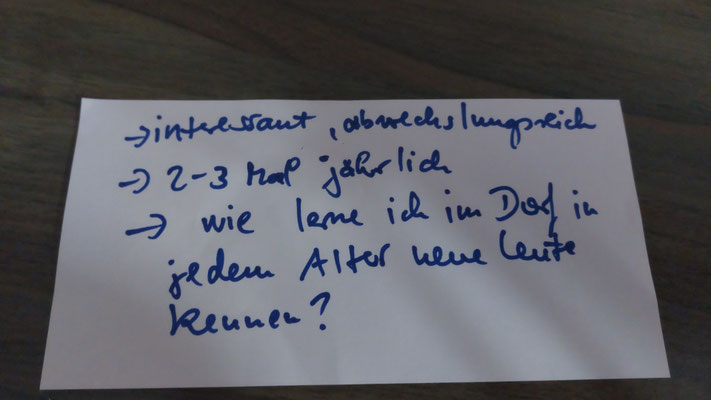 → interessant, abwechslungsreich
→ 2-3 Mal jährlich
→ wie lerne ich im Dorf in
jedem Alter neue Leute
kennen?